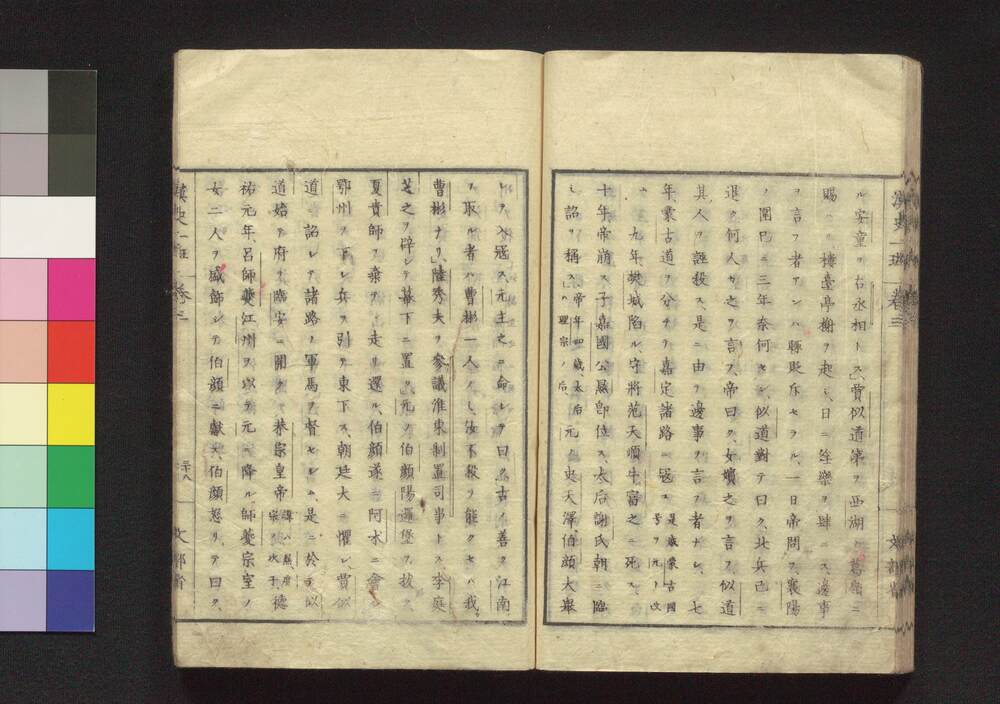 ル、安童ヲ右丞相トス、賈似道第ヲ西湖ノ葛嶺ニ
賜ハリ、樓臺亭榭ヲ起シ、日ニ淫樂ヲ肆ニス、邊事
ヲ言フ者アレハ輙貶斥セラル、一日帝問フ、襄陽
ノ圍已ニ三年奈何セン、似道對テ曰ク、北兵已ニ
退ク何人カ之ヲ言フ、帝曰ク、女嬪之ヲ言フ、似道
其人ヲ誣殺ス、是ニ由テ邊事ヲ言フ者ナシ、七
年、蒙古道ヲ分テ嘉定諸路ニ寇ス 是歳蒙古國號ヲ元ト改ム
九年、樊城陷ル、守將范天順牛富之ニ死ス、
十年、帝崩ス、子嘉國公㬎卽位ス、太后謝氏朝ニ臨
ミ詔ヲ稱ス 帝年四歳太后ハ理宗ノ后 元ノ史天澤伯顔大擧
シテ入寇ス、元主之ニ命シテ曰ク、古ノ善ク江南
ヲ取ル者ハ曹彬一人ノミ、汝不殺ヲ能クセハ我
曹彬ナリ、陸秀夫ヲ參議淮東制置司事トス、李庭
芝之ヲ辟シテ幕下ニ置ク、元ノ伯顔陽邏堡ヲ拔ク、
夏貴師ヲ棄テヽ走リ還ル、伯顔遂ニ阿朮ニ會シ
鄂州ヲ下シ兵ヲ引テ東下ス、朝廷大ニ懼レ、賈似
道ニ詔シテ諸路ノ軍馬ヲ督セシム、是ニ於テ似
道始テ府ヲ臨安ニ開ク、恭宗皇帝 諱ハ㬎度宗ノ次子 德
祐元年、呂師夔江州ヲ以テ元ニ降ル、師夔宗室ノ
女二人ヲ盛飾シテ伯顔ニ獻ス、伯顔怒リテ曰ク、
漢史一班 卷三
二十八
文部省